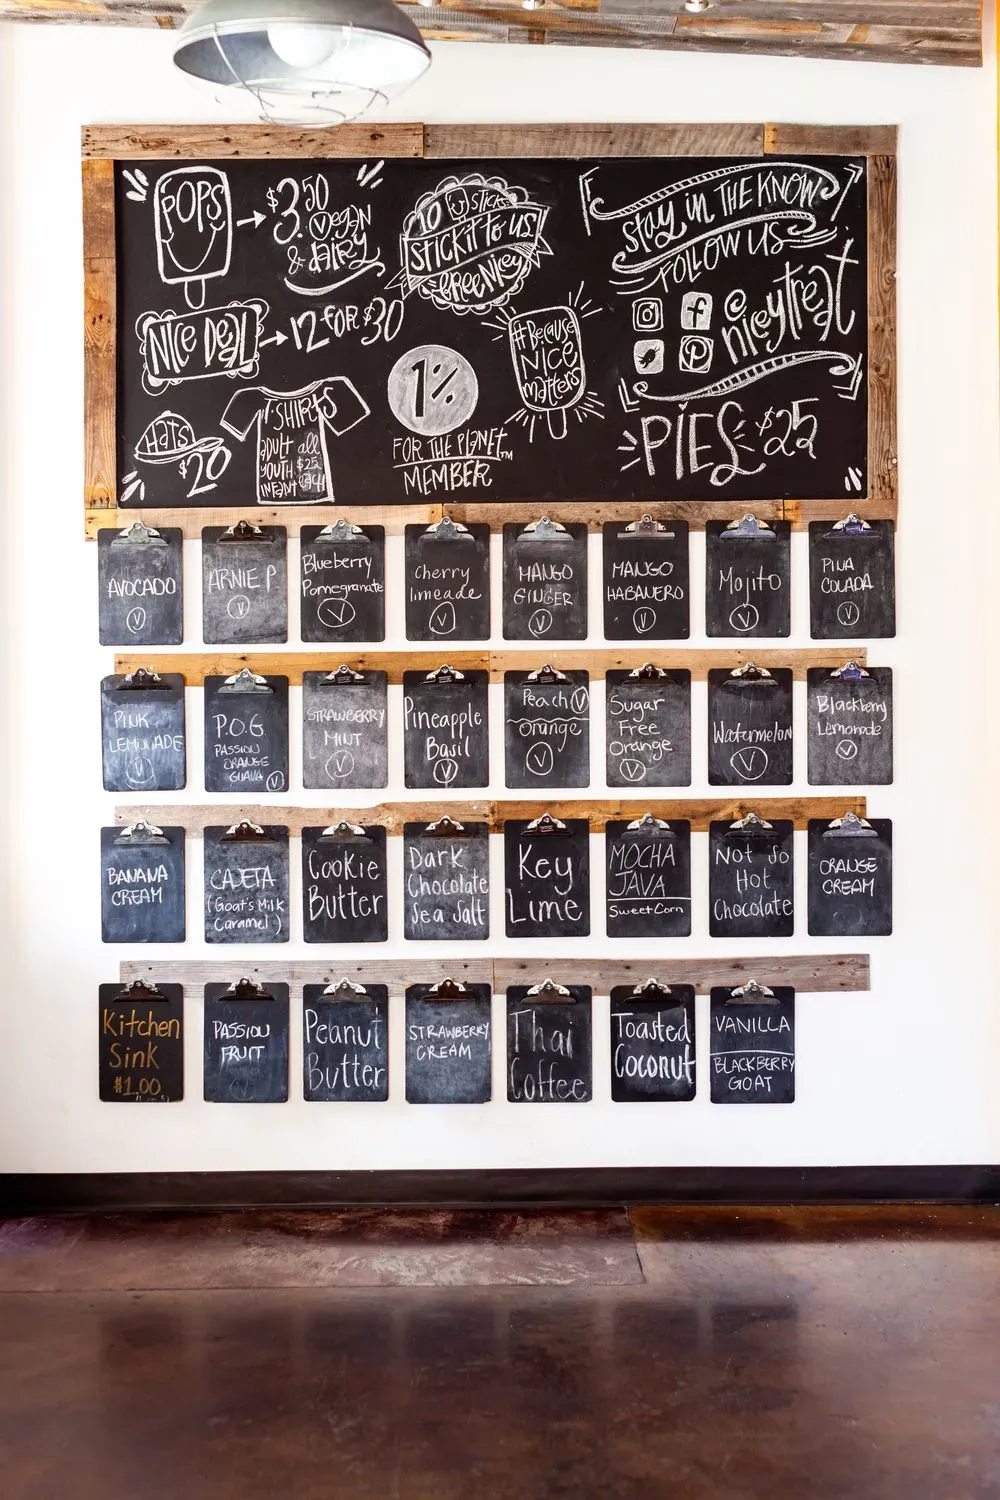 POPS
$3.50
Vegan
& dairy
NICE DEAL
12 FOR $30
HATS
$20
T-SHIRTS
ADULT all
YOUTH $25
INFANT
10 STICKS
STICK IT to US!
FREE NICEY
1%
FOR THE PLANET™
MEMBER
#Because
NICE
matters
Stay in THE KNOW
FOLLOW US
@niceytreat
PIES $25
AVOCADO
V
ARNIE P.
V
Blueberry
Pomegranate
V
Cherry
limeade
V
MANGO
GINGER
V
MANGO
HABANERO
V
Mojito
V
PINA
COLADA
V
PINK
LEMONADE
V
P.O.G
PASSION
ORANGE
GUAVA V
STRAWBERRY
MINT
V
Pineapple
Basil
V
Peach V
Orange
V
Sugar
Free
Orange
V
Watermelon
V
Blackberry
Lemonade
V
BANANA
CREAM
CAJETA
(Goat's Milk
Caramel)
Cookie
Butter
Dark
Chocolate
Sea Salt
Key
Lime
MOCHA
JAVA
Sweet Corn
Not So
Hot
Chocolate
ORANGE
CREAM
Kitchen
Sink
$1.00
PASSION
FRUIT
Peanut
Butter
STRAWBERRY
CREAM
Thai
Coffee
Toasted
Coconut
VANILLA
BLACKBERRY
GOAT